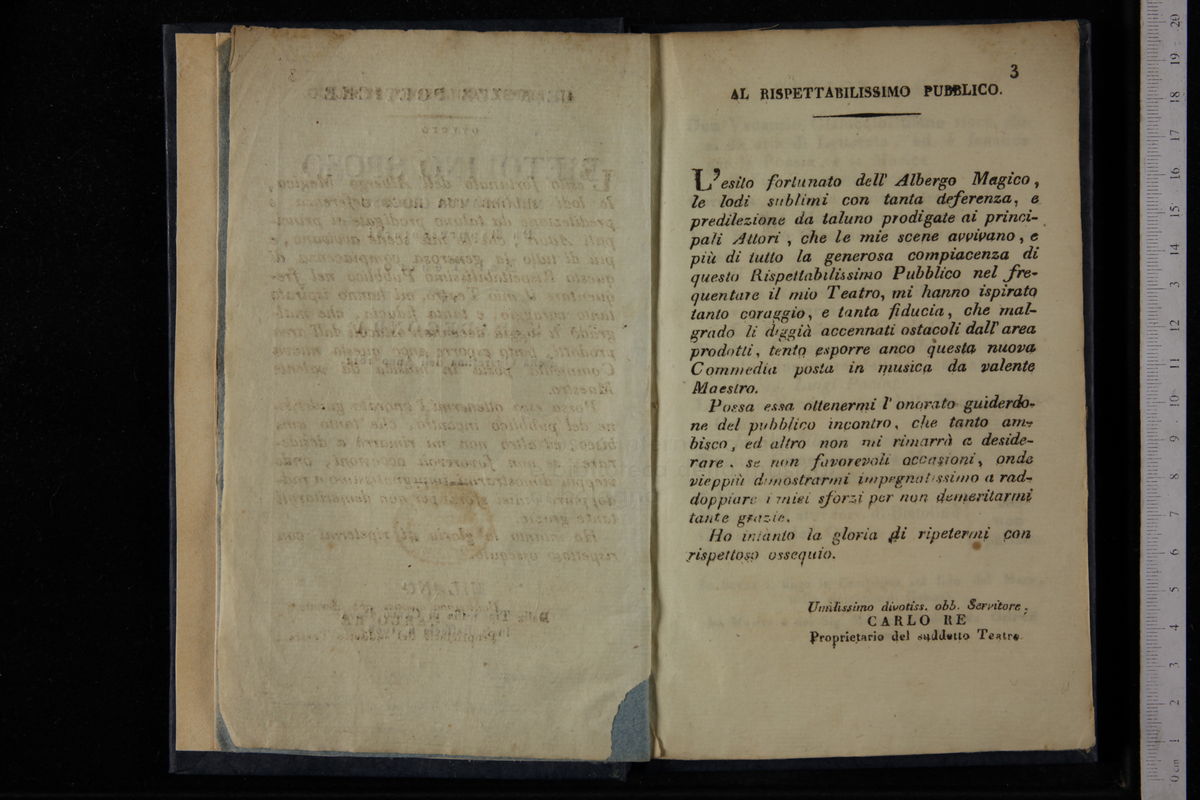 3
AL RISPETTABILISSIMO PUBBLICO.
L'esito fortunato dell' Albergo Magico,
le lodi sublimi con tanta deferenza, e
predilezione da taluno prodigate ai princi-
pali Attori, che le mie scene avvivano, e
più di tutto la generosa compiacenza di
questo Rispettabilissimo Pubblico nel fre-
quentare il mio Teatro, mi hanno ispirato
tanto coraggio, e tanta fiducia, che mal-
grado li diggià accennati ostacoli dall' area
prodotti, tento esporre anco questa nuova
Commedia posta in musica da valente
Maestro.
Possa essa ottenermi l' onorato guiderdo-
ne del pubblico incontro, che tanto am-
bisco, ed altro non mi rimarrà a deside-
rare, se non favorevoli occasioni, onde
vieppiù dimostrarmi impegnatissimo a rad-
doppiare i miei sforzi per non demeritarmi
tante grazie.
Ho intanto la gloria di ripetermi con
rispettoso ossequio.
Umilissimo divotiss. obb. Servitore.
CARLO RE
Proprietario del suddetto Teatro
0 cm 1 2 3 4 5 6 7 8 9 10 11 12 13 14 15 16 17 18 19 20